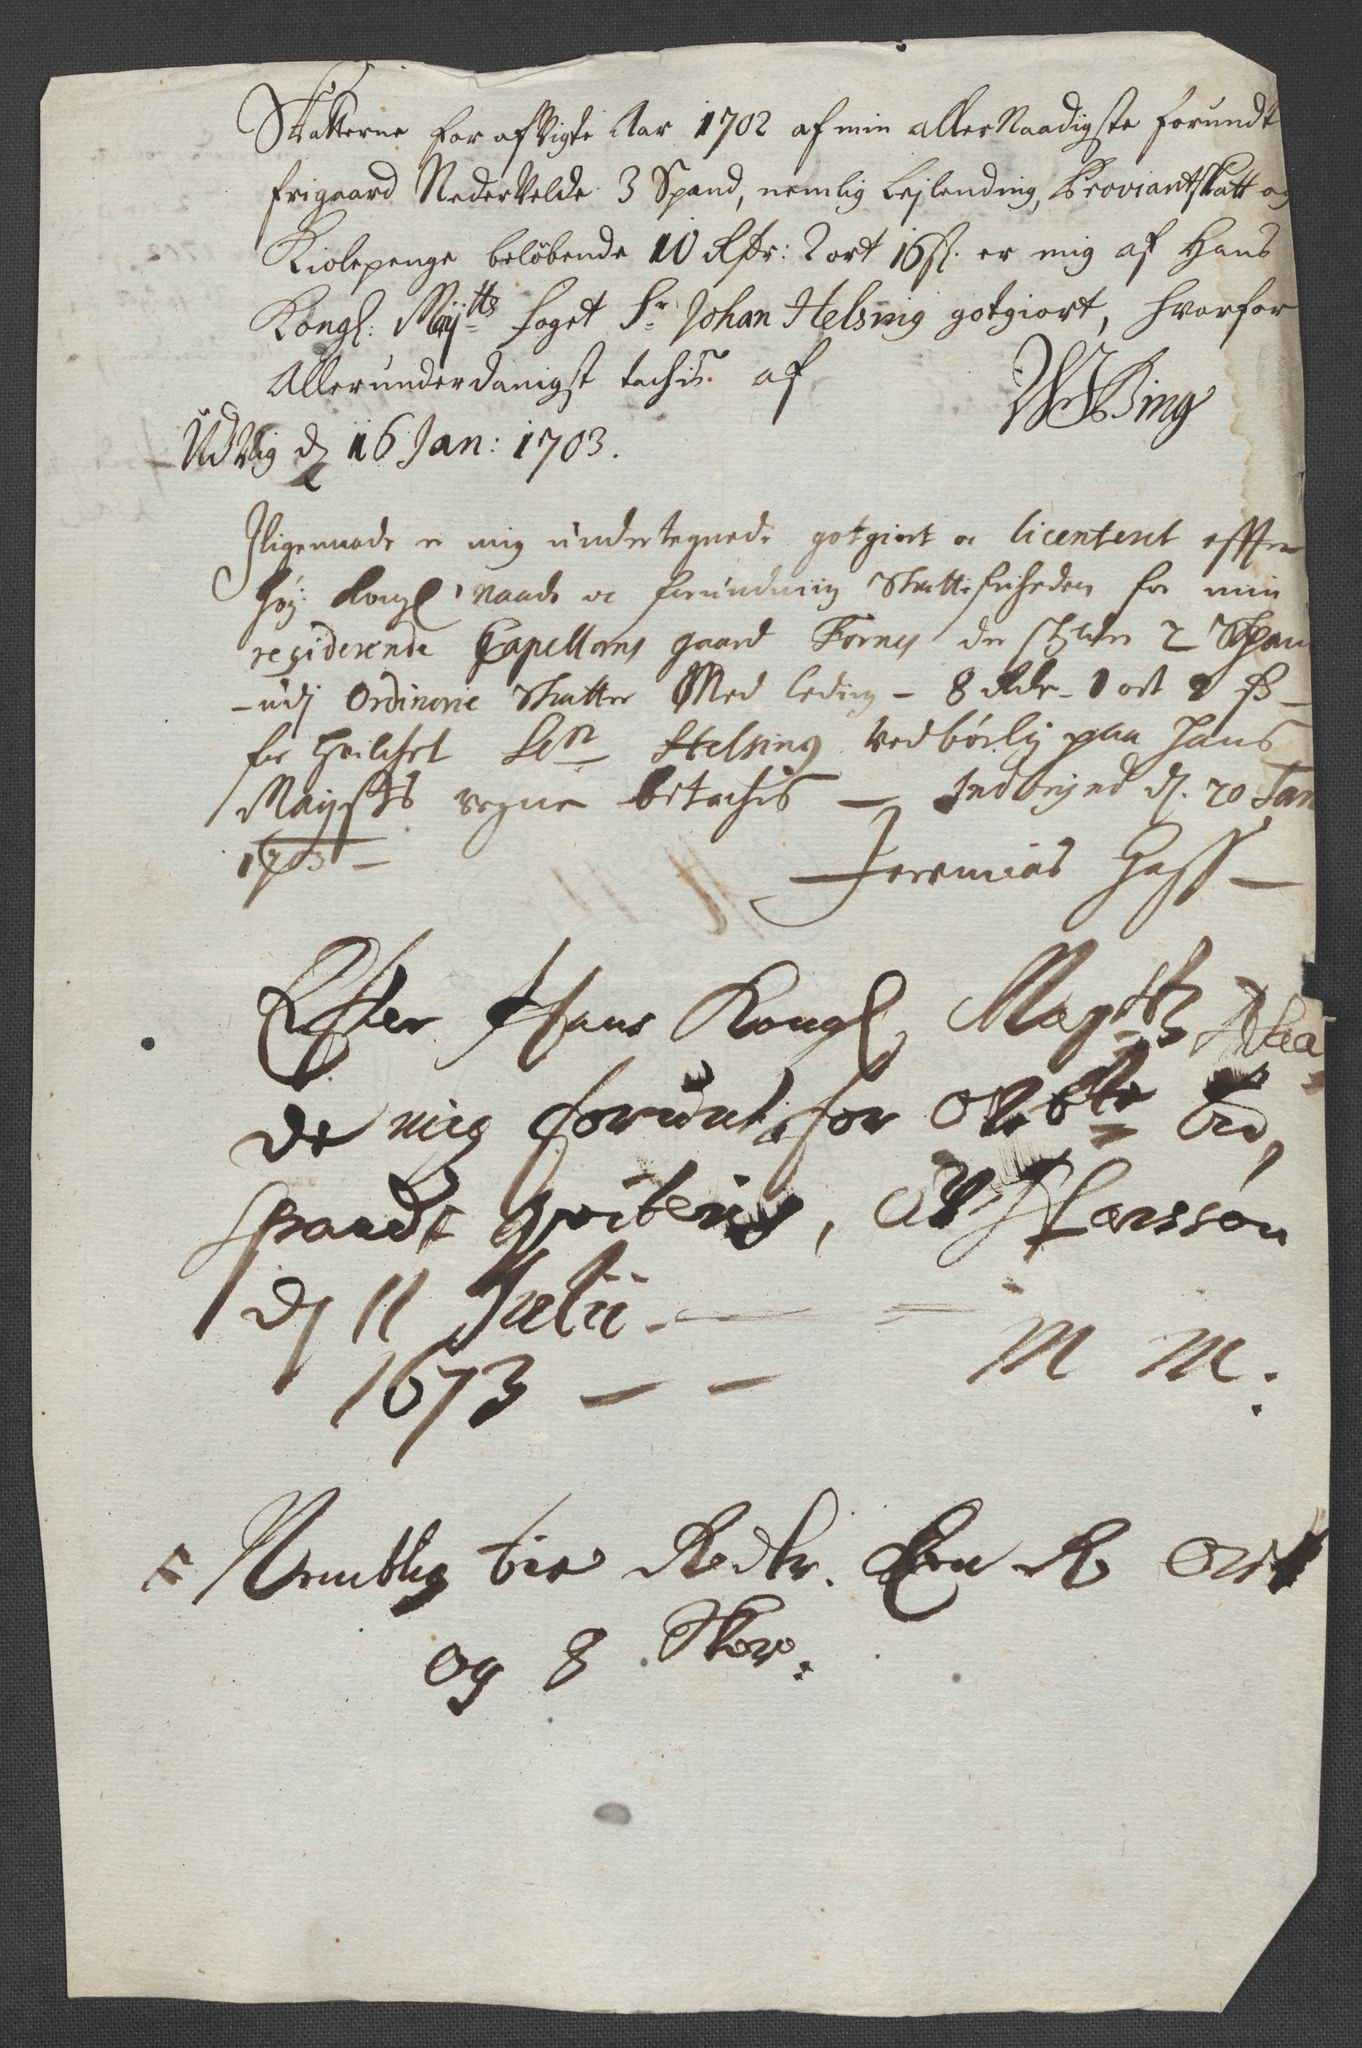 Skatterne for afvigte Aar 1702 af min allernaadigste forundt
frigaard Nedervelde 3 Spand, nemlig Leilending, Proviantskatt og
Kiolepenge beløbende 10 Rdr: 2 ort 16 s. er mig af Hans
Kongl: Maytts foget Sr Johan Helsing gotgiort, hvorfor
Allerunderdanigst tachis af
Bing
Udvig d 16 Jan: 1703.
Iligemaade er mig undertegnede gotgiort oc licenteret effter
høy Kongl naade oc forundning Skattefriheden for min
residerende Capellans gaard Fornes der schylder 2 Span
udj Ordinarie Skatter Med leding - 8 Rdr - 1 ort s -
for hvilchet Helsing vedbørlig paa hans
Maysts vegne betachis - d. 20 Jan
1703 -
Jeremias Hass
Efter Hans Kongl Maytts Naa
de mig forunt for
spandt qviteris, Larssøn
dj 11 Julii - -
1673 - - M M.
Nemblig tie Rdr. En R Ort
og 8 Skor.